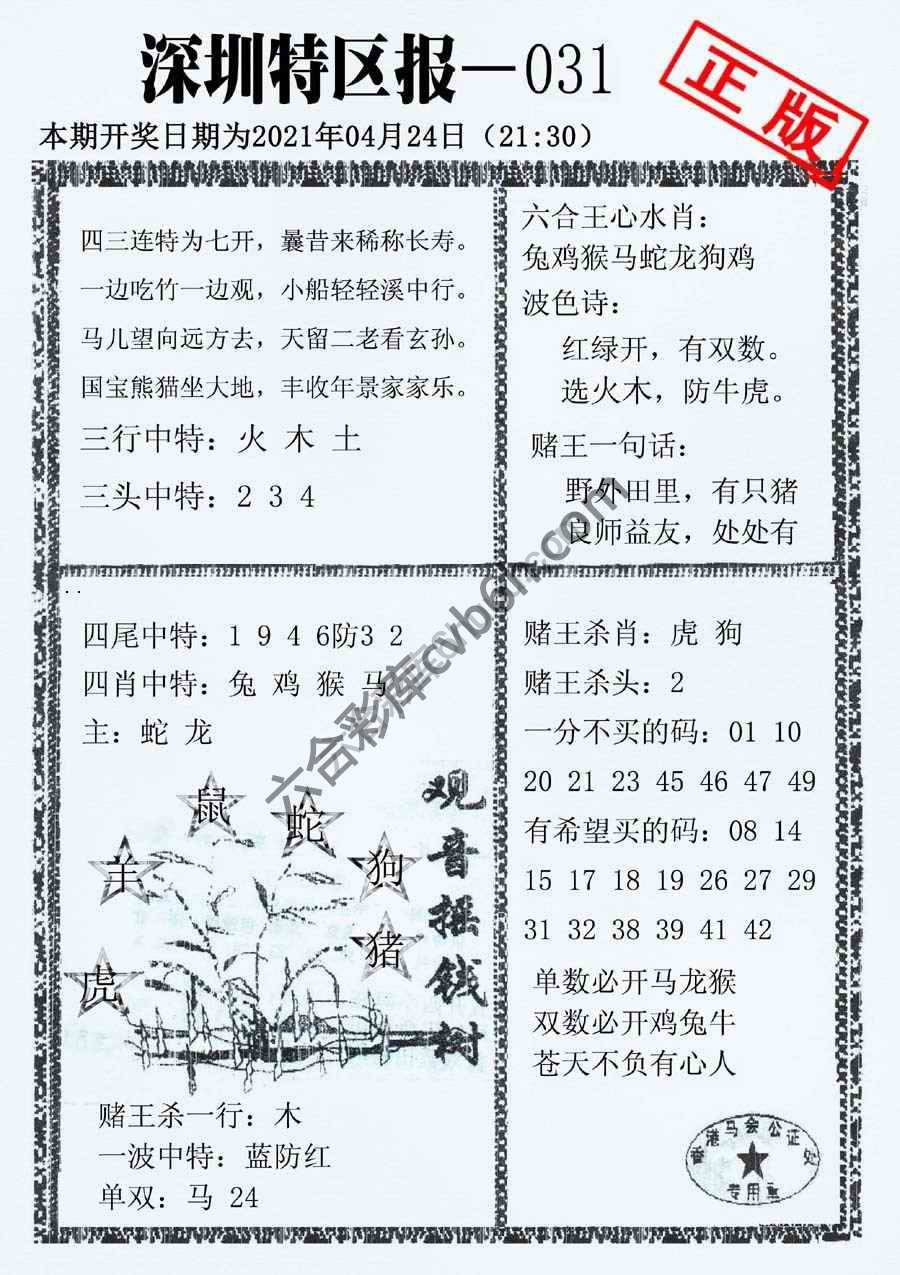 深圳特区报—031
正版
本期开奖日期为2021年04月24日（21:30）
四三连特为七开，曩昔来稀称长寿。
一边吃竹一边观，小船轻轻溪中行。
马儿望向远方去，天留二老看玄孙。
国宝熊猫坐大地，丰收年景家家乐。
三行中特：火 木 土
三头中特：2 3 4
六合王心水肖：
兔鸡猴马蛇龙狗鸡
波色诗：
红绿开，有双数。
选火木，防牛虎。
赌王一句话：
野外田里，有只猪
良师益友，处处有
四尾中特：1 9 4 6防3 2
四肖中特：兔 鸡 猴 马
主：蛇 龙
鼠
蛇
羊
狗
猪
虎
观音摇钱树
赌王杀一行：木
一波中特：蓝防红
单双：马 24
赌王杀肖：虎 狗
赌王杀头：2
一分不买的码：01 10
20 21 23 45 46 47 49
有希望买的码：08 14
15 17 18 19 26 27 29
31 32 38 39 41 42
单数必开马龙猴
双数必开鸡兔牛
苍天不负有心人
香港马会公证处
专用章
六合彩库cvb6h.com